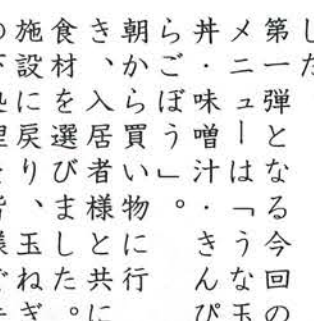 した
第一弾となる今回の
メニューは「うな玉
丼・味噌汁・きんぴ
らごぼう」。
朝から買い物に行
き、入居者様と共に
食材を選びました。
施設に戻り、玉ねぎ
の下処理を皆様で